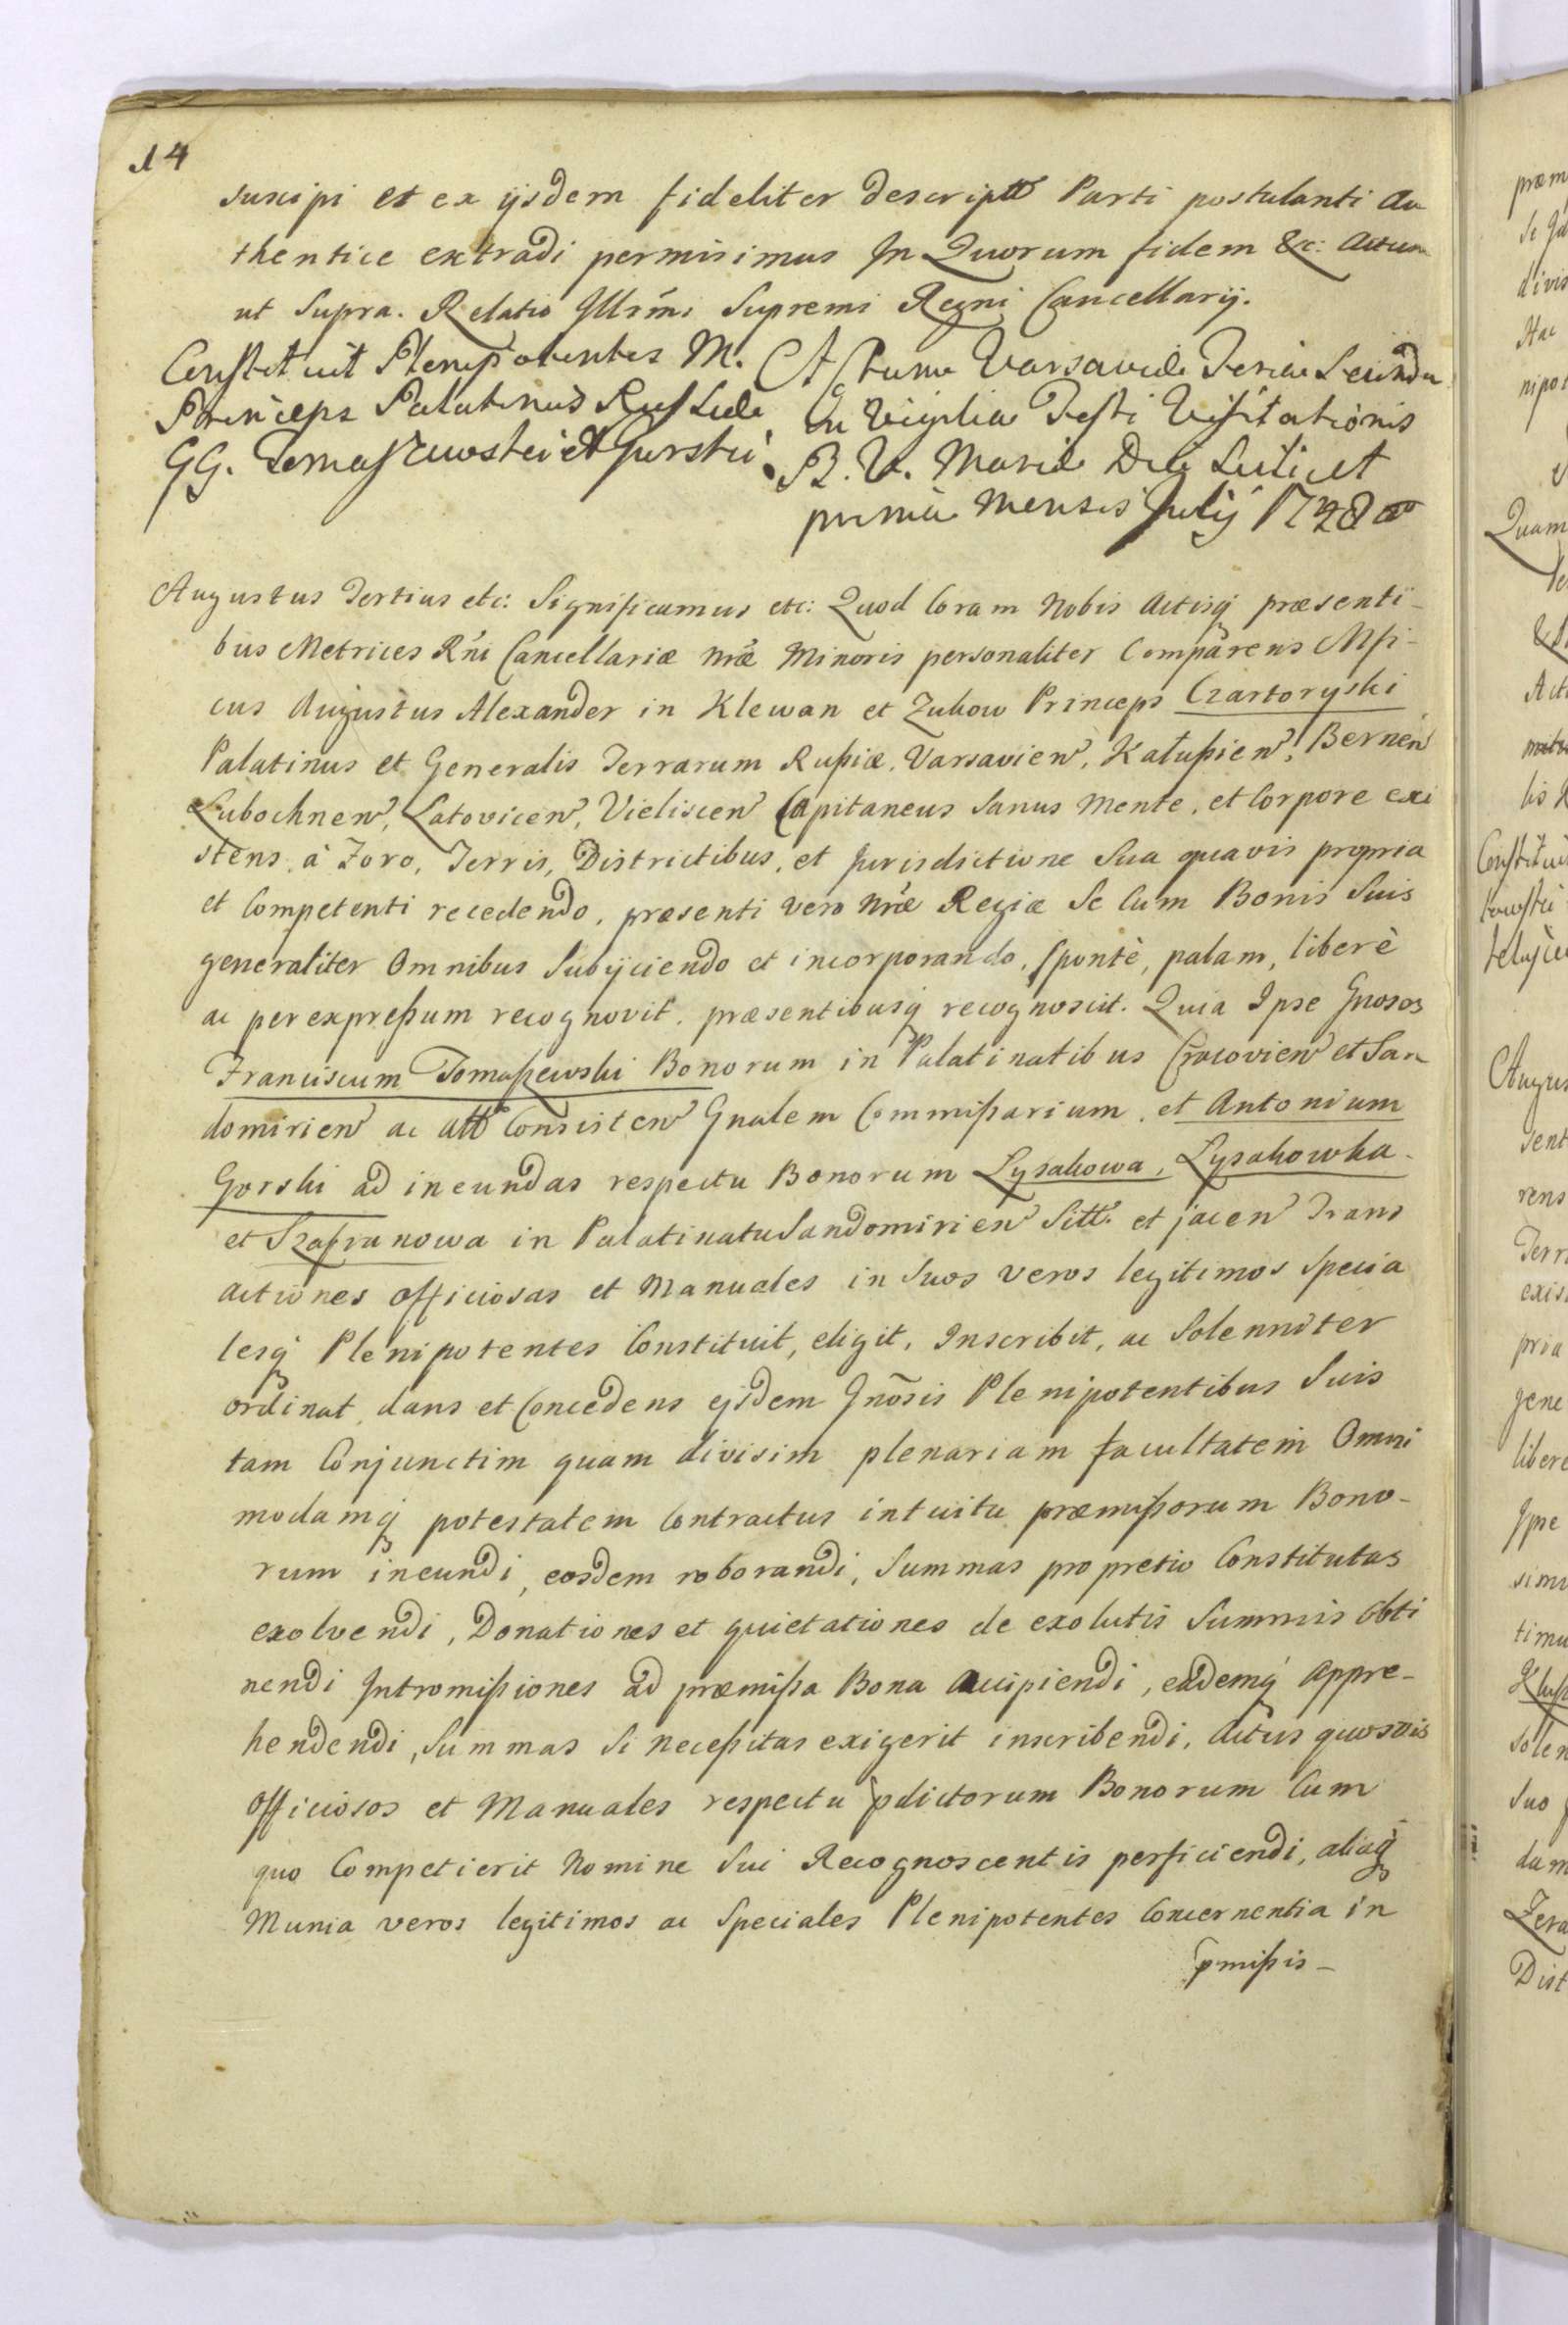 14
suscipi et ex ijsdem fideliter descriptt Parti postulanti Au
thentice extradi permisimus In Quorum fidem &c: Actum
ut Supra. Relatio Illrm̃i Supremi Regni Cancellarij.
Constituit Plenipotentes M.
Princeps Palatinus Russiae
GG. Tomaszewski et Gorski.
Actum Varsaviae Feria Secunda
In Vigilia Festi Visitationis
B. V. Mariae Die Scilicet
prima Mensis Julij 1748 ao
Augustus Tertius etc: Significamus etc: Quod Coram Nobis Actisq́ præsenti-
bus Metrices Rñi Cancellariæ Nræ Minoris personaliter Comparens Mfi-
cus Augustus Alexander in Klewan et Zukow Princeps Czartoryski
Palatinus et Generalis Terrarum Rußiæ, Varsavien, Kałußien, Bernen
Lubochnen, Latovicen, Vieliscen Capitaneus Sanus Mente, et Corpore exi
stens, à Foro, Terris, Districtibus, et Jurisdictione Sua quavis propria
et Competenti recedendo, præsenti vero Nræ Regiæ Se Cum Bonis Suis
generaliter Omnibus Subijciendo et incorporando, Spontè, palam, liberè
ac per expreßum recognovit, præsentibusq́ recognoscit. Quia Ipse Gnosos
Franciscum Tomaßewski Bonorum in Palatinatibus Cracovien et San
domirien ac att Consisten Gnalem Commißarium, et Antonium
Gorski ad ineundas respectu Bonorum Lysakowa, Lysakowka
et Szafranowa in Palatinatu Sandomirien Sitt. et jacen Trans
actiones officiosas et Manuales in Suos veros legitimos Specia
lesq́ Plenipotentes Constituit, eligit, Inscribit, ac Solenniter
ordinat, dans et Concedens ejsdem Gnõsis Plenipotentibus Suis
tam Conjunctim quam divisim plenariam facultatem Omni
modamq́ potestatem Contractus intuitu præmißorum Bono-
rum ineundi, eosdem roborandi, Summas pro pretio Constitutas
exolvendi, Donationes et quietationes de exolutis Summis obti
nendi Intromißiones ad præmißa Bona Accipiendi, eademq́ Appre-
hendendi, Summas Si neceßitas exigerit inscribendi, Actus quosvis
Officiosos et Manuales respectu p̃dictorum Bonorum Cum
quo Competierit Nomine Sui Recognoscentis perficiendi, aliaq́
Munia veros legitimos ac Speciales Plenipotentes Concernentia in
p̃mißis-